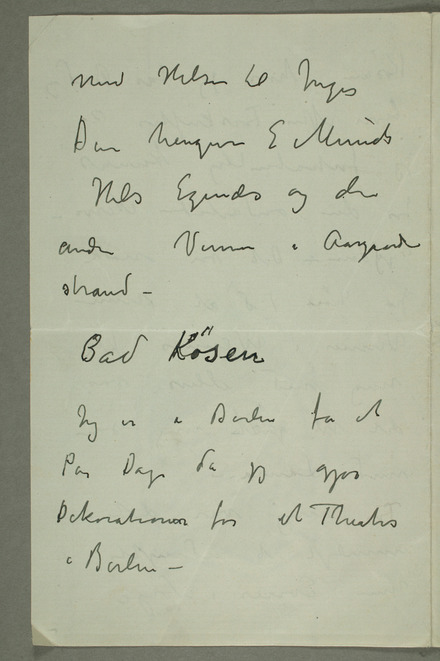 med Hilsen til Inger
Din hengivne E Munch
Hils Egnæs og de
andre Venner i Aasgaard
strand –
Bad Kösen
Jeg er i Berlin for et
Par Dage da jeg gjør
Dekorationer for et Theater
i Berlin –